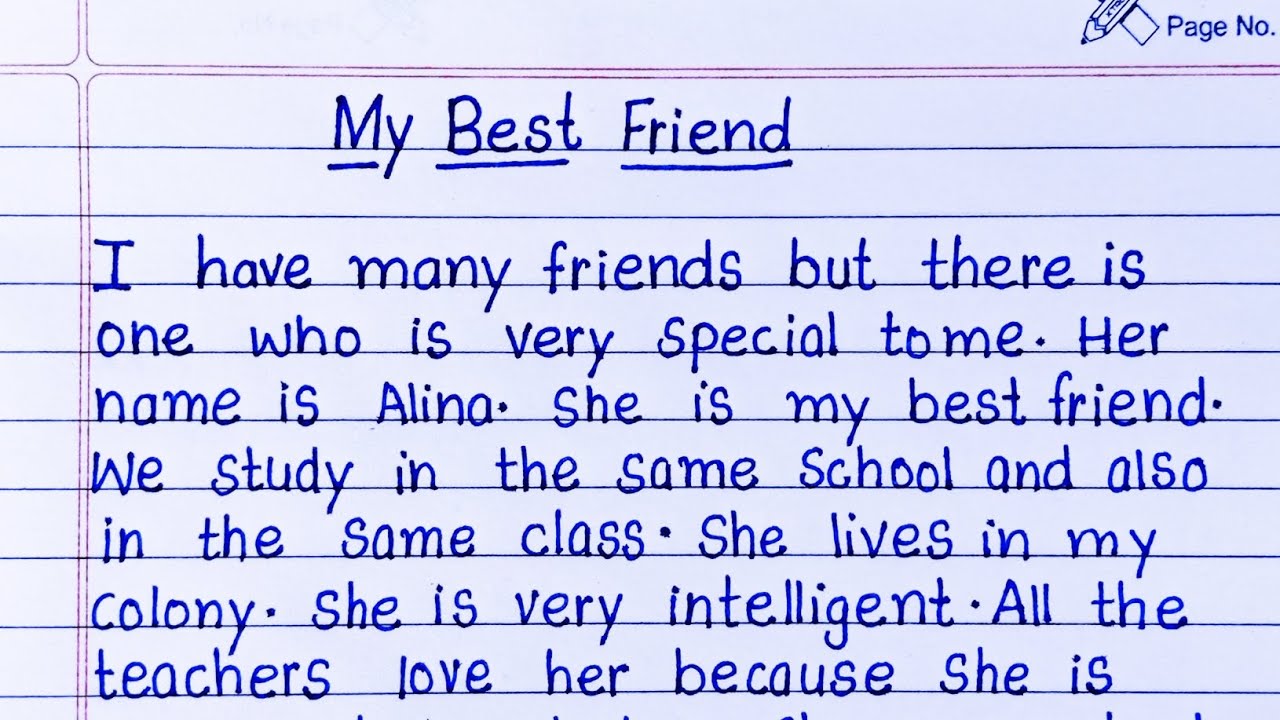 Page No.
My Best Friend
I have many friends but there is
one who is very special to me. Her
name is Alina. She is my best friend.
We study in the same School and also
in the same class. She lives in my
colony. She is very intelligent. All the
teachers love her because she is